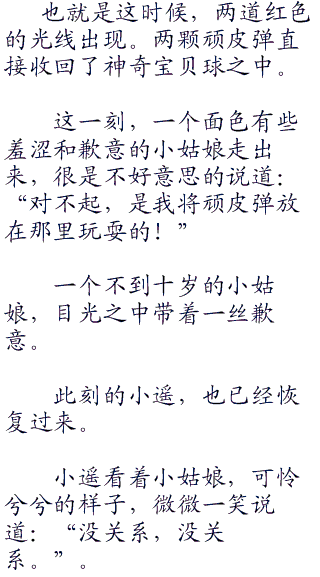 也就是这时候，两道红色
的光线出现。两颗顽皮弹直
接收回了神奇宝贝球之中。
这一刻，一个面色有些
羞涩和歉意的小姑娘走出
来，很是不好意思的说道：
“对不起，是我将顽皮弹放
在那里玩耍的！”
一个不到十岁的小姑
娘，目光之中带着一丝歉
意。
此刻的小遥，也已经恢
复过来。
小遥看着小姑娘，可怜
兮兮的样子，微微一笑说
道：“没关系，没关
系。”。